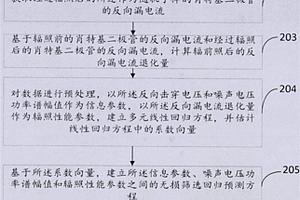 的反向漏电流
203
基于辐照前的肖特基二极管的反向漏电流和经过辐照
后的肖特基二极管的反向漏电流，计算辐前照后的反
向漏电流退化量
204
对数据进行预处理，以所述反向击穿电压和噪声电压
功率谱幅值作为信息参数，以所述反向漏电流退化量
作为辐照性能参数，建立多元线性回归方程，并估计
线性回归方程中的系数向量
205
基于所述系数向量，建立所述信息参数、噪声电压功
率谱幅值和辐照性能参数之间的无损筛选回归预测方
程